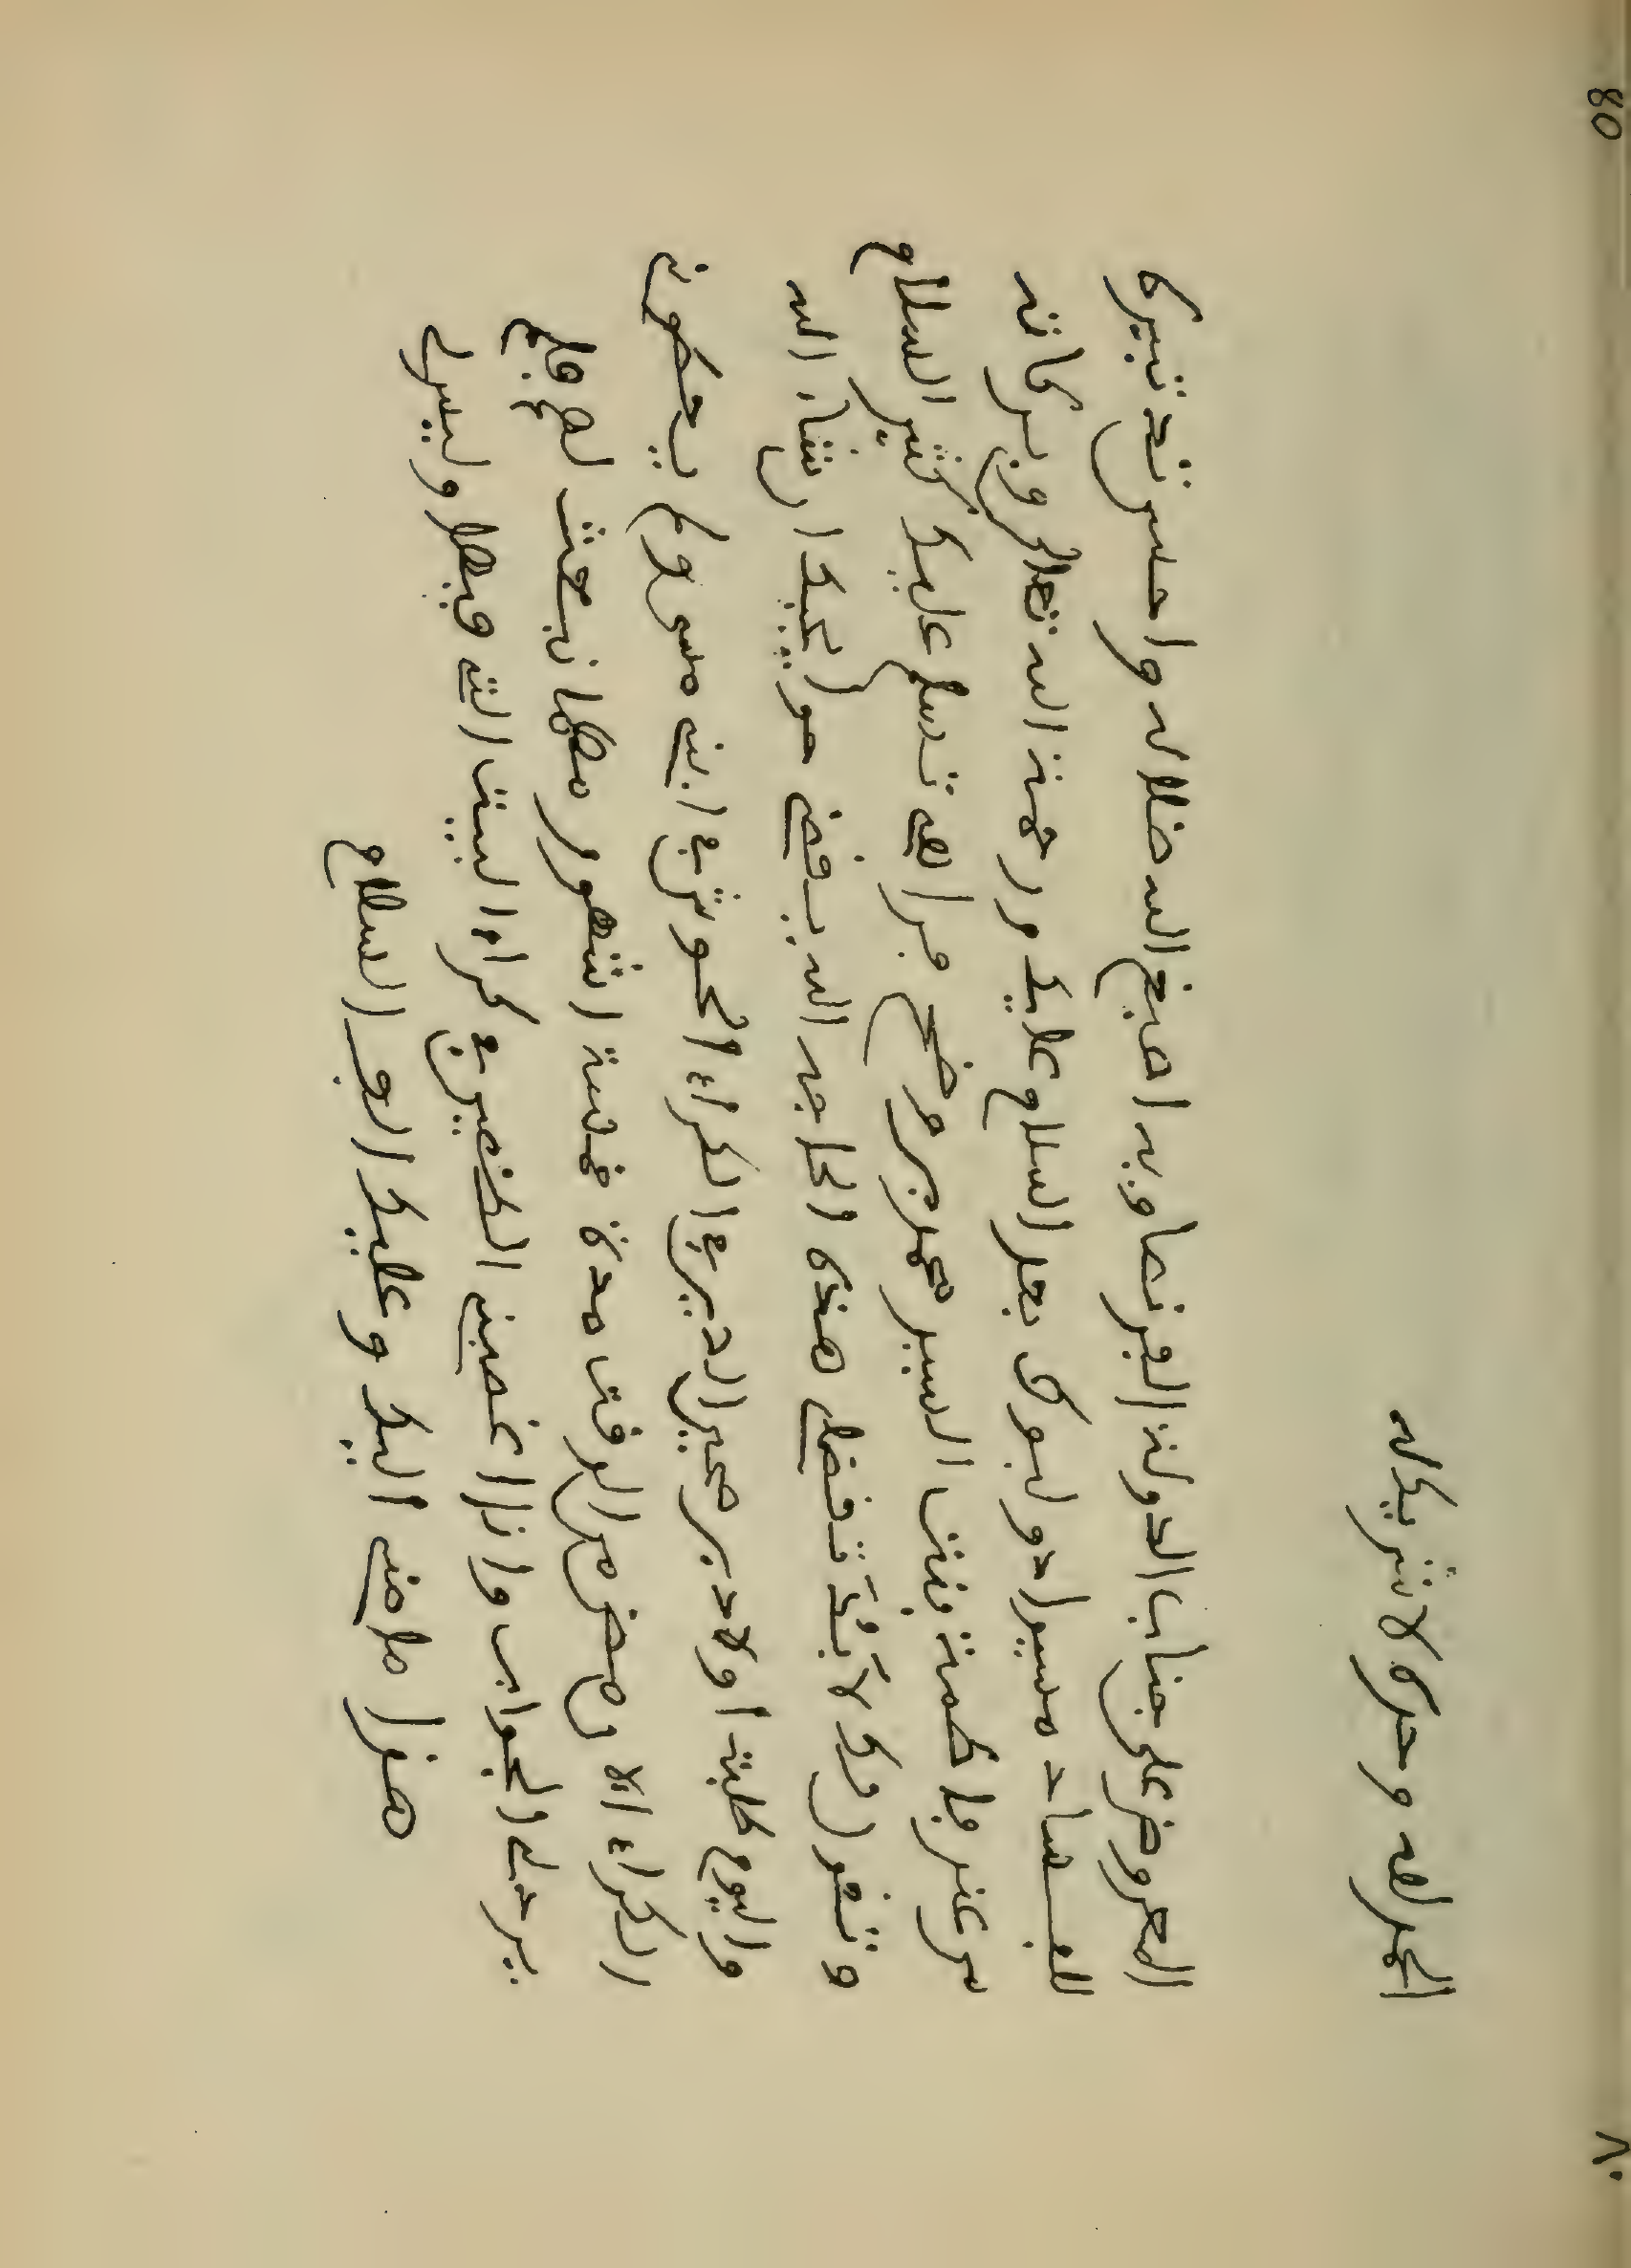 80
٨٠
الحمد لله وحده لا شريك له
المعروض على جناب الدولة الفرنصاويه اصبغ الله ضلاله واحسن تدبيره
للفساد مسيرا دوليوى بعد السلام عليك ورحمة الله تعالى وبركاته
من عند فاطمة بنت السيد محمد بن وضح مراهي تسلم عليك كثير السلام
وتقول لك لا بُدَّ تفضل هذه الحاجه الله يقض حوايجك ان شاء الله
واليوم طلبت اولاد بن صحين الدين في الكراء الحوش في ابني منسى ولم يعطون
الكراء الا وحضر من الوقت مدة خمسة اشهور مهما نبعث لهم فلم
يرد لي الجواب وانزا غصبني الخضير في كراء البيت التي فيها وليس لي
هذا ما مني اليك وعليك الف السلام